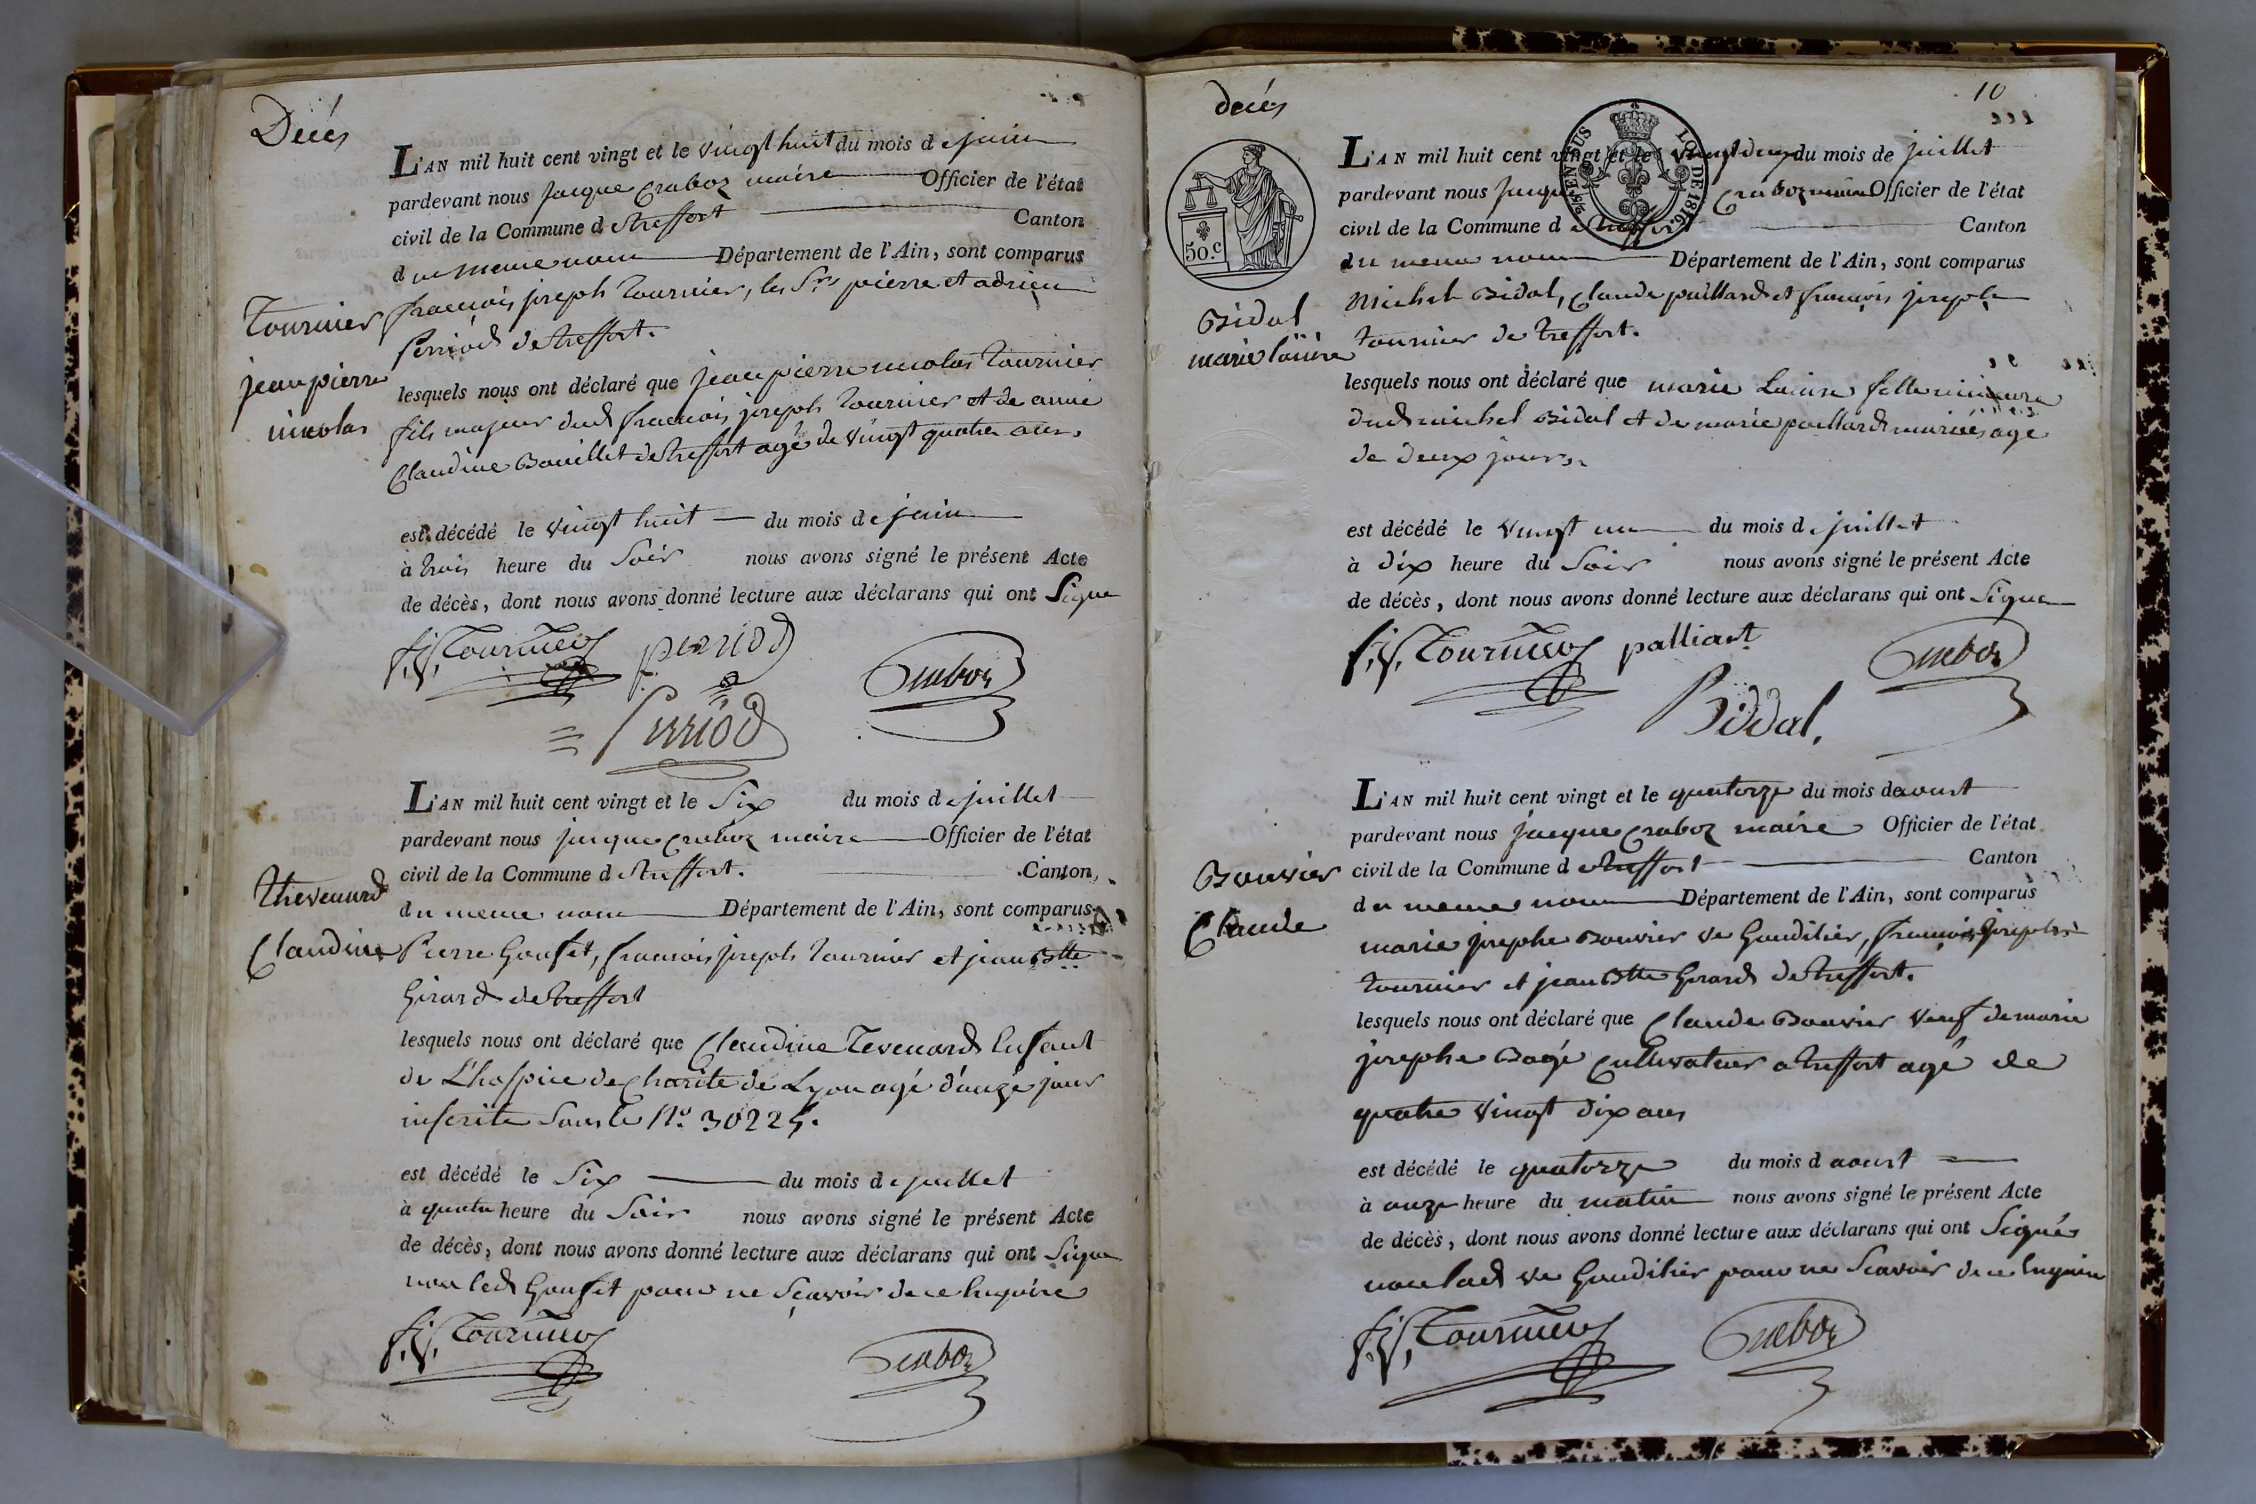 Décés
L'AN mil huit cent vingt et le vingt huit du mois de juin
pardevant nous jacque Craboz maire Officier de l'état
civil de la Commune de treffort Canton
du meme nom Département de l'Ain, sont comparus
Tournier françois joseph tournier, les Srs pierre et adrien
perriod de treffort.
jean pierre
nicolas
lesquels nous ont déclaré que jean pierre nicolas tournier
fils majeur dud françois joseph tournier et de anne
Claudine Bouillet de treffort agé de vingt quatre ans.
est décédé le vingt huit du mois de juin
à trois heure du Soir nous avons signé le présent Acte
de décès, dont nous avons donné lecture aux déclarans qui ont Signé
f. j. Tournier perriod
Craboz
Perriod
L'AN mil huit cent vingt et le Six du mois de juillet
pardevant nous jacque Craboz maire Officier de l'état
civil de la Commune de treffort. Canton
Thevenard
du meme nom Département de l'Ain, sont comparus
Claudine Pierre Gonset, francois joseph tournier et jean Btte
Girard de treffort
lesquels nous ont déclaré que Claudine Tevenard Enfant
de L'hospice de Charite de Lyon agé d'onze jour
inscrite Sous le No. 30225.
est décédé le Six du mois de juillet
à quatre heure du Soir nous avons signé le présent Acte
de décès, dont nous avons donné lecture aux déclarans qui ont Signé
non led Gonset pour ne Sçavoir de ce Enquire
f. j. Tournier
Craboz
10
decés
L'AN mil huit cent vingt et le vingt deux du mois de juillet
pardevant nous jacque Craboz maire Officier de l'état
civil de la Commune de treffort Canton
du meme nom Département de l'Ain, sont comparus
EN SUS LOI DE 1816.
50.c
Michel Bidal, Claude paillard et françois joseph
tournier de treffort.
Bidal
marie Louise
lesquels nous ont déclaré que marie Louise fille mineure
dud michel Bidal et de marie paillard mariés agé
de deux jours.
est décédé le vingt un du mois de juillet
à dix heure du Soir nous avons signé le présent Acte
de décès, dont nous avons donné lecture aux déclarans qui ont Signé
f. j. Tournier palliart
Craboz
Biddal.
L'AN mil huit cent vingt et le quatorze du mois de aoust
pardevant nous jacque Craboz maire Officier de l'état
civil de la Commune de treffort Canton
Bouvier
du meme nom Département de l'Ain, sont comparus
Claude
marie josephe Bouvier ve Gaudilier, françois joseph
tournier et jean Btte Girard de treffort.
lesquels nous ont déclaré que Claude Bouvier veuf de marie
josephe Bagé Cultivateur a treffort agé de
quatre vingt dix ans
est décédé le quatorze du mois d aoust
à onze heure du matin nous avons signé le présent Acte
de décès, dont nous avons donné lecture aux déclarans qui ont Signés
non lad ve Gaudilier pour ne Scavoir de ce Enquire
f. j. Tournier Craboz